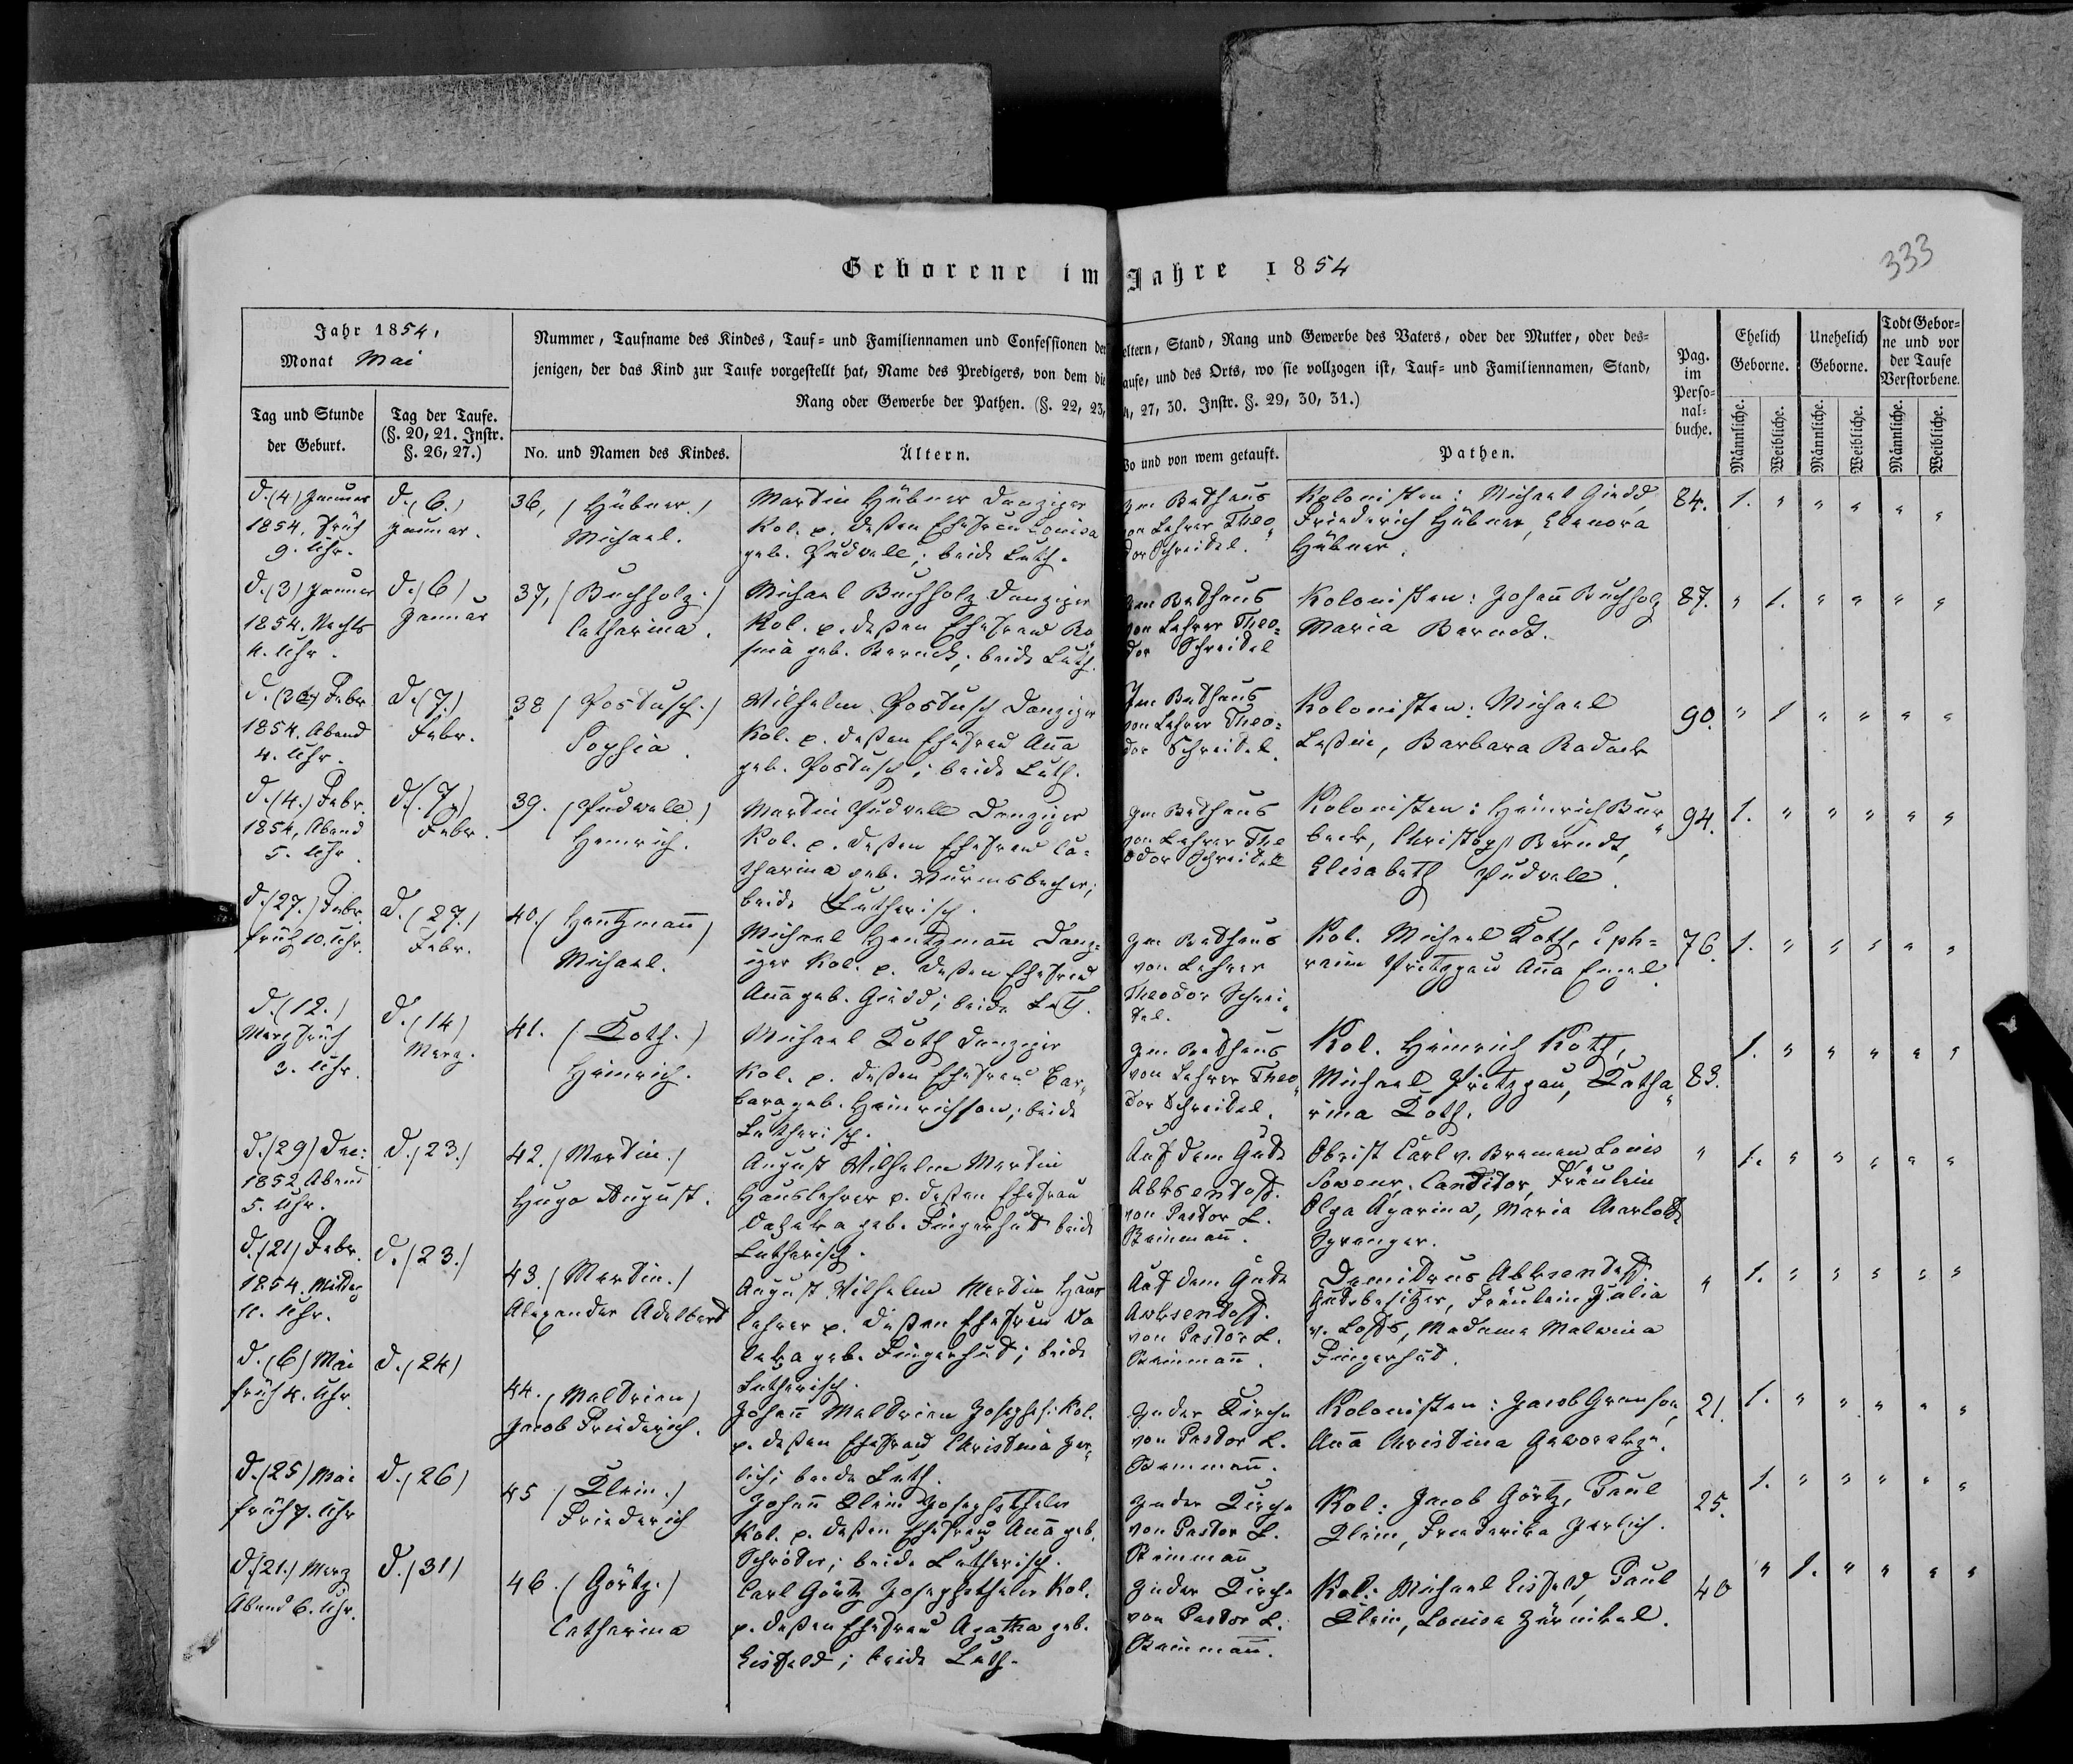 333
Geborene im Jahre 1854
Jahr 1854,
Monat Mai
Tag und Stunde
der Geburt.
Tag der Taufe.
(§. 20, 21. Instr.
§. 26, 27.)
Nummer, Taufname des Kindes, Tauf- und Familiennamen und Confessionen der eltern, Stand, Rang und Gewerbe des Vaters, oder der Mutter, oder des-
jenigen, der das Kind zur Taufe vorgestellt hat, Name des Predigers, von dem die aufe, und des Orts, wo sie vollzogen ist, Tauf- und Familiennamen, Stand,
Rang oder Gewerbe der Pathen. (§. 22, 23, 27, 30. Instr. §. 29, 30, 31.)
No. und Namen des Kindes.
Ältern.
Wo und von wem getauft.
Pathen.
Pag.
im
Perso-
nal-
buche.
Ehelich
Geborne.
Unehelich
Geborne.
Todt Gebor-
ne und vor
der Taufe
Verstorbene.
Männliche.
Weibliche.
Männliche.
Weibliche.
Männliche.
Weibliche.
d. (4) Januar
1854, früh
9. Uhr.
d. (6.)
Januar.
36, (Hübner.)
Michael.
Martin Hübner Danziger
Kol. p. deßen Ehefrau Louisa
geb. Pudwell; beide Luth.
Im Bethaus
von Lehrer Theo-
dor Schreidel.
Kolonisten: Michael Giedd,
Friederich Hübner, Elenora
Hübner.
84. 1. " " " " "
d. (3) Januar
1854. Nachts
4. Uhr.
d. (6)
Januar
37, (Buchholz.)
Catharina.
Michael Buchholz Danziger
Kol. p. deßen Ehefrau Ro-
sina geb. Berndt; beide Luth.
Im Bethaus
von Lehrer Theo-
dor Schreidel
Kolonisten: Johañ Buchholz
Maria Berndt.
87. " 1. " " " "
Febr
1854. Abend
4. Uhr.
d. (7.)
Febr.
38 (Postusch.)
Sophia.
Wilhelm Postusch Danziger
Kol. p. deßen Ehefrau Aña
geb. Postusch; beide Luth.
Im Bethaus
von Lehrer Theo-
dor Schreidel.
Kolonisten: Michael
Leßin, Barbara Radack
90. " 1 " " " "
d. (4.) Febr.
1854, Abend
5. Uhr.
d. (7.)
Febr.
39. (Pudwell.)
Heinrich.
Martin Pudwell Danziger
Kol. p. deßen Ehefrau Ca-
tharina geb. Wurmsbecher;
beide Lutherisch.
Im Bethaus
von Lehrer The
odor Schreidel
Kolonisten: Heinrich Bur-
beck, Christoph Berndt,
Elisabeth Pudwell.
94. 1. " " " " "
d. (27.) Febr.
früh 10. Uhr.
d. (27.)
Febr.
40. (Hentzmañ)
Michael.
Michael Hentzmañ Danz-
iger Kol. p. deßen Ehefrau
Aña geb. Giedd; beide Luth.
Im Bethaus
von Lehrer
Theodor Schrei-
del.
Kol. Michael Koth, Eph-
raim Pritzgau Aña Engel.
76. 1. " " " " "
d. (12.)
Merz früh
3. Uhr.
d. (14)
Merz.
41. (Koth.)
Heinrich.
Michael Koth Danziger
Kol. p. deßen Ehefrau Bar-
bara geb. Heinrichson; beide
Lutherisch.
Im Bethaus
von Lehrer Theo-
dor Schreidel.
Kol. Heinrich Koth,
Michael Pritzgau, Katha-
rina Koth.
83. 1. " " " " "
d. (29) Dec:
1852 Abend
5. Uhr.
d. (23.)
42. (Martin.)
Hugo August.
August Wilhelm Martin
Hauslehrer p. deßen Ehefrau
geb. Fingerhut beide
Lutherisch.
Auf dem Gute
von Pastor L.
Steinmañ.
Obrist Carl v. Bremen Louis
Candidor, Fräulein
Olga Agarina, Maria Charlotte
Sprenger.
" 1. " " " " "
d. (21) Febr.
1854. Mittag
11. Uhr.
d. (23.)
43. (Martin.)
Alexander Adelbert
August Wilhelm Martin Haus
lehrer p. deßen Ehefrau
geb. Fingerhut; beide
Lutherisch.
Auf dem Gute
von Pastor L.
Steinmañ.
Gutsbesitzer, Fräulein Julia
Madame Malwina
Fingerhut.
" 1. " " " " "
d. (6) Mai
früh 4. Uhr.
d. (24)
44. (Maldrien)
Jacob Friederich.
Johañ Maldrien Josephsth: Kol.
p. deßen Ehefrau Christina Ger-
lich; beide Luth.
In der Kirche
von Pastor L.
Steinmañ.
Kolonisten: Jacob Granson
Aña Christina
21. 1. " " " " "
d. (25) Mai
früh 7. Uhr
d. (26)
45 (Klein.)
Friederich
Johañ Klein Josephsthaler
Kol. p. deßen Ehefrau Aña geb.
Schröder; beide Lutherisch.
In der Kirche
von Pastor L.
Steinmañ
Kol: Jacob Görtz, Paul
Klein, Friederika Gerlich.
25. 1. " " " " "
d. (21.) Merz
Abend 6. Uhr.
d. (31)
46. (Görtz.)
Catharina
Carl Görtz Josephsthaler Kol.
p. deßen Ehefrau Agatha geb.
Eisfeld; beide Luth.
In der Kirche
von Pastor L.
Steinmañ.
Kol: Michael Eisfeld, Paul
Klein, Louisa Zürnikel.
40 " 1. " " " "